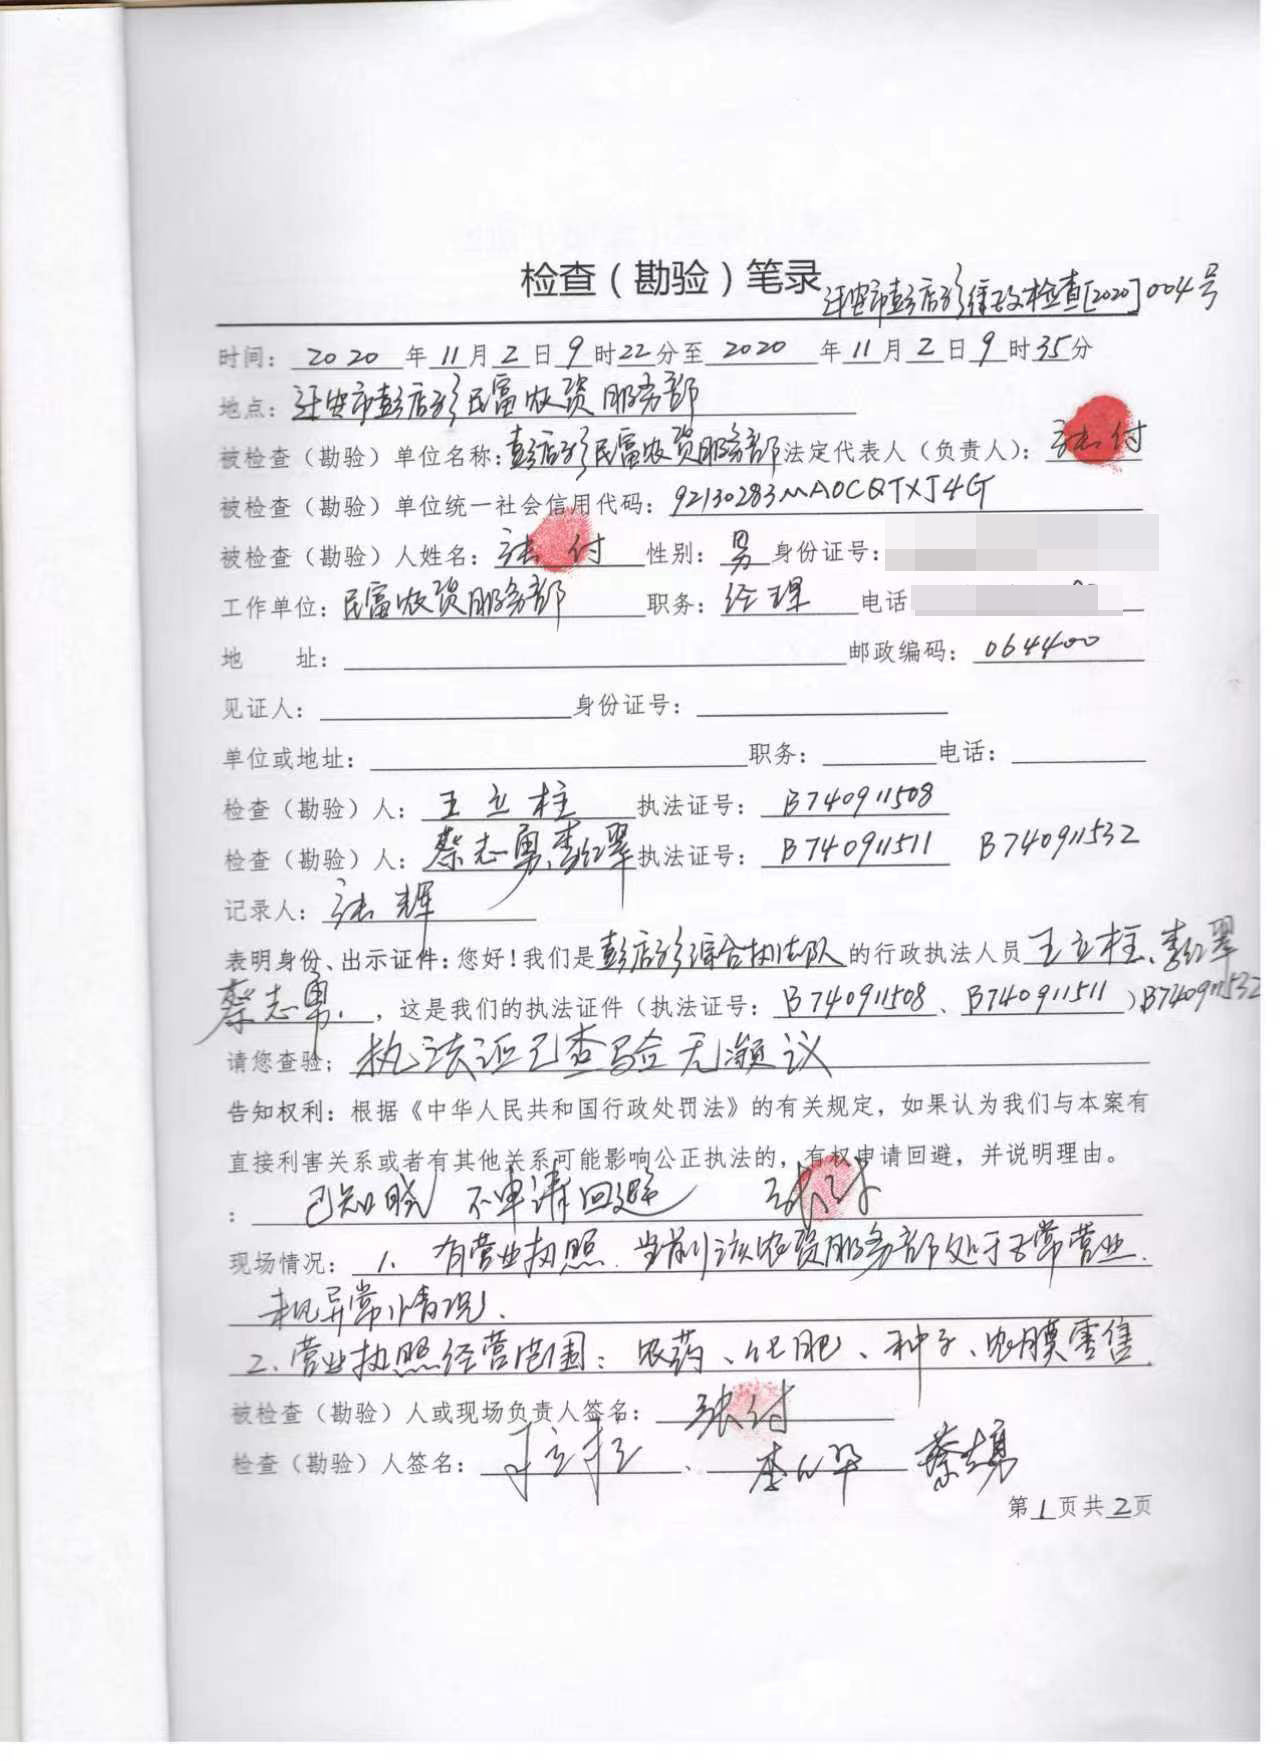 检查（勘验）笔录
迁安市彭店子综行政检查[2020]004号
时间：2020年11月2日9时22分至2020年11月2日9时35分
地点：迁安市彭店子民富农资服务部
被检查（勘验）单位名称：彭店子民富农资服务部法定代表人（负责人）：张付
被检查（勘验）单位统一社会信用代码：92130283MA0CQTXJ4G
被检查（勘验）人姓名：张付 性别：男 身份证号：
工作单位：民富农资服务部 职务：经理 电话
地 址： 邮政编码：064400
见证人： 身份证号：
单位或地址： 职务： 电话：
检查（勘验）人：王立柱 执法证号：B740911508
检查（勘验）人：蔡志勇、李红翠 执法证号：B740911511 B740911532
记录人：张辉
表明身份、出示证件：您好！我们是彭店子综合执法队的行政执法人员王立柱、李红翠
蔡志勇、，这是我们的执法证件（执法证号：B740911508、B740911511）B740911532
请您查验：执法证已查验无疑议
告知权利：根据《中华人民共和国行政处罚法》的有关规定，如果认为我们与本案有
直接利害关系或者有其他关系可能影响公正执法的，有权申请回避，并说明理由。
：已知晓 不申请回避 张付
现场情况：1、有营业执照．当前该农资服务部处于正常营业．
未见异常情况．
2、营业执照经营范围：农药、化肥、种子、农膜零售
被检查（勘验）人或现场负责人签名：张付
检查（勘验）人签名：王立柱、 蔡志勇
第1页共2页